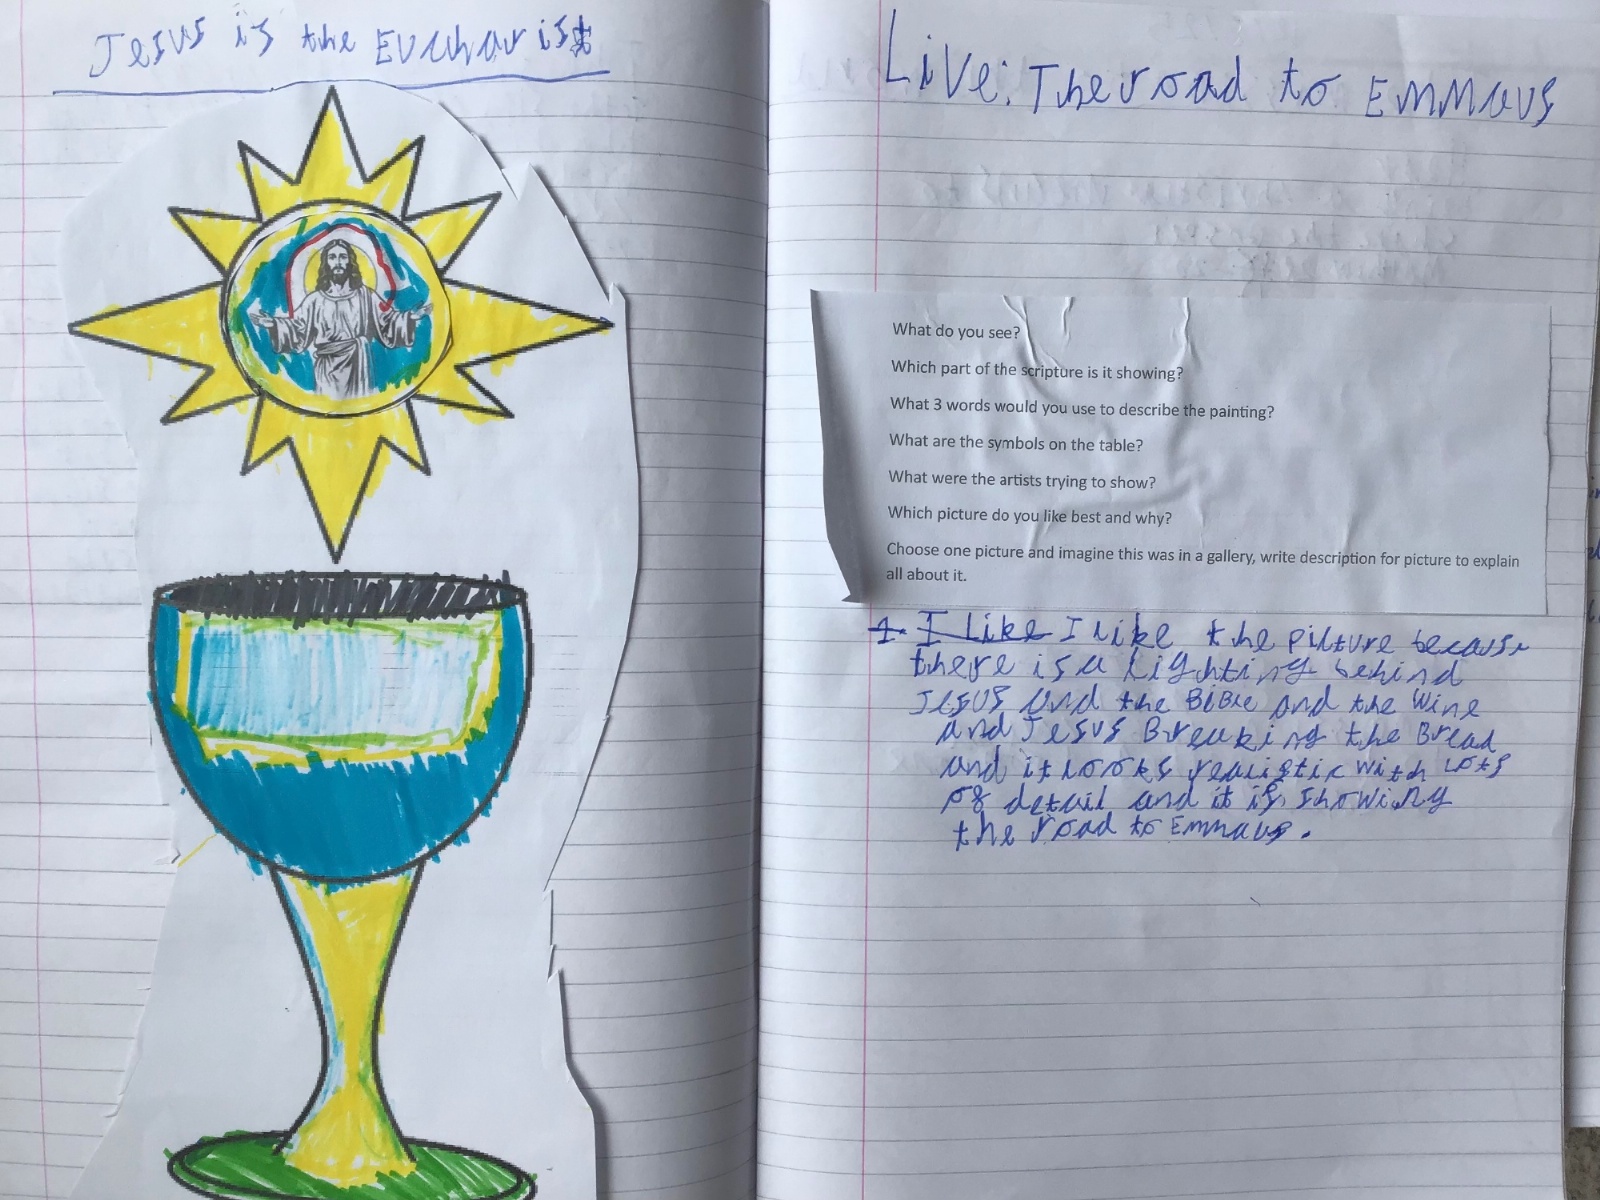 Jesus is the Eucharist
Live: The road to Emmaus
What do you see?
Which part of the scripture is it showing?
What 3 words would you use to describe the painting?
What are the symbols on the table?
What were the artists trying to show?
Which picture do you like best and why?
Choose one picture and imagine this was in a gallery, write description for picture to explain
all about it.
1. I like I like the picture because
there is a lighting behind
Jesus and the Bible and the Wine
and Jesus Breaking the Bread
and it looks realistic with lots
of detail and it is showing
the road to Emmaus.